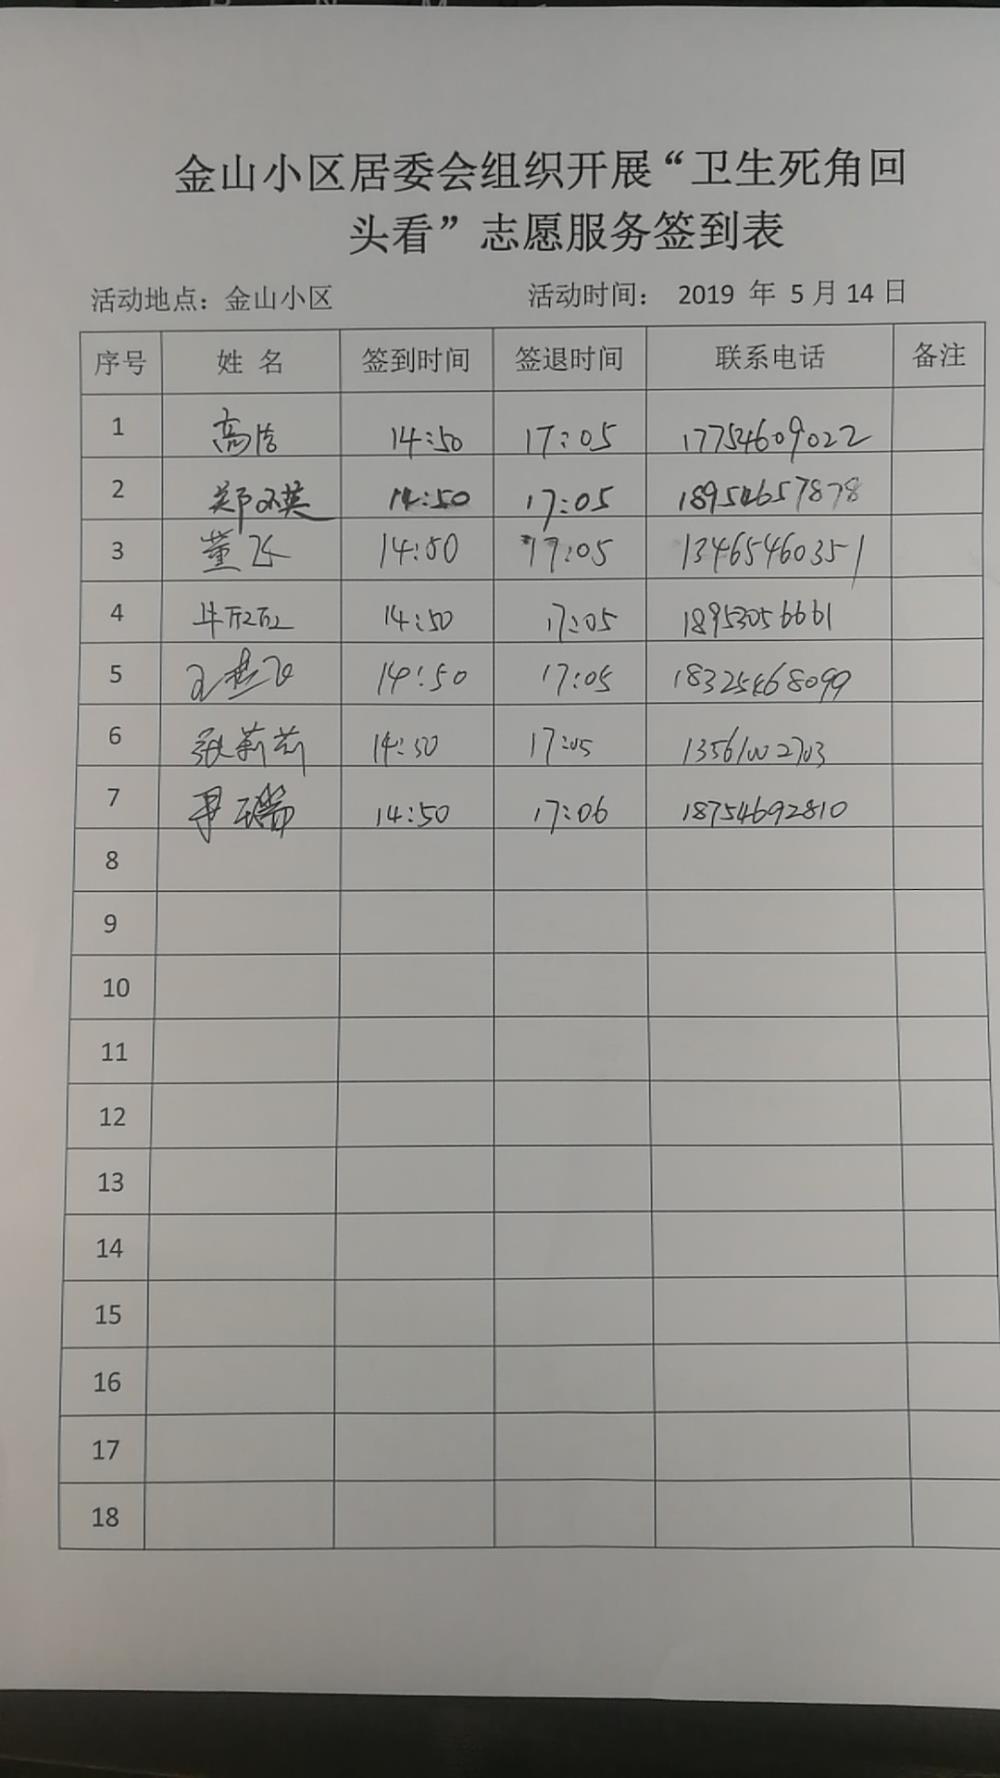 金山小区居委会组织开展“卫生死角回
头看”志愿服务签到表
活动地点：金山小区 活动时间： 2019 年 5 月 14 日
序号 姓 名 签到时间 签退时间 联系电话 备注
1 高洁 14:50 17:05 17754609022
2 郑双英 14:50 17:05 18954657878
3 董飞 14:50 17:05 13465460351
4 14:50 17:05 18953056661
5 14:50 17:05 18325468099
6 张莉莉 14:50 17:05 13561002703
7 尹瑞 14:50 17:06 18754692810
8
9
10
11
12
13
14
15
16
17
18